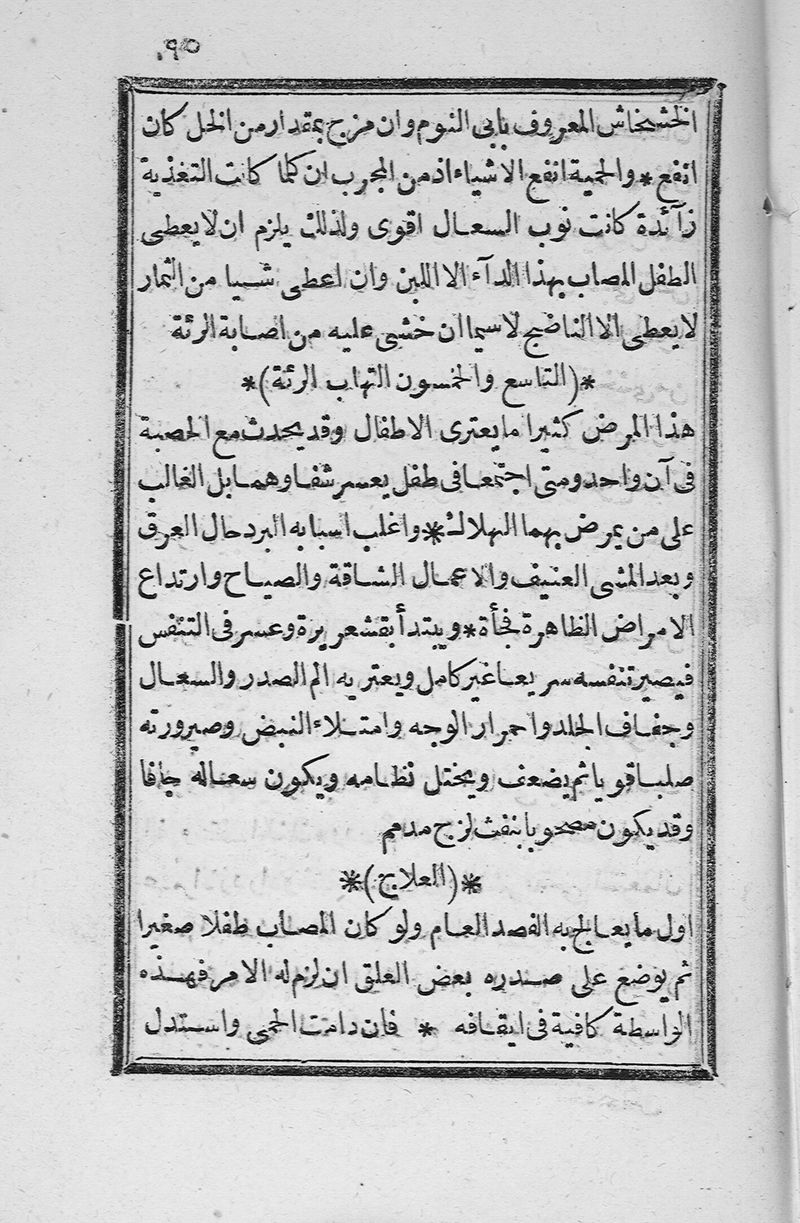 الخشخاش المعروف بابى النوم وان مزج بمقدار من الخل كان
انفع * والحمية انفع الاشياء اذ من المجرب ان كلما كانت التغذية
زآئدة كانت نوب السعال اقوى ولذلك يلزم ان لا يعطى
الطفل المصاب بهذا الدآء الا اللبن وان اعطى شيا من الثمار
لا يعطى الا الناضج لاسيما ان خشى عليه من اصابة الرئة
*(التاسع والخمسون التهاب الرئة)*
هذا المرض كثيرا ما يعترى الاطفال وقد يحدث مع الحصبة
فى آن واحد ومتى اجتمعا فى طفل يعسر شفاوهما بل الغالب
على من يمرض بهما الهلاك * واغلب اسبابه البرد حال العرق
وبعد المشى العنيف والاعمال الشاقة والصياح وارتداع
الامراض الظاهرة فجأة * ويبتدأ بقشعريرة وعسر فى التنفس
فيصير تنفسه سريعا غير كامل ويعتريه الم الصدر والسعال
وجفاف الجلد واحمرار الوجه وامتلاء النبض وصيرورته
صلبا قويا ثم يضعف ويختل نظامه ويكون سعاله جافا
وقد يكون مصحوبا بنفث لزج مدمم
*(العلاج)*
اول ما يعالج به الفصد العام ولو كان المصاب طفلا صغيرا
ثم يوضع على صدره بعض العلق ان لزم له الامر فهذه
الواسطة كافية فى ايقافه * فان دامت الحمى واستدل